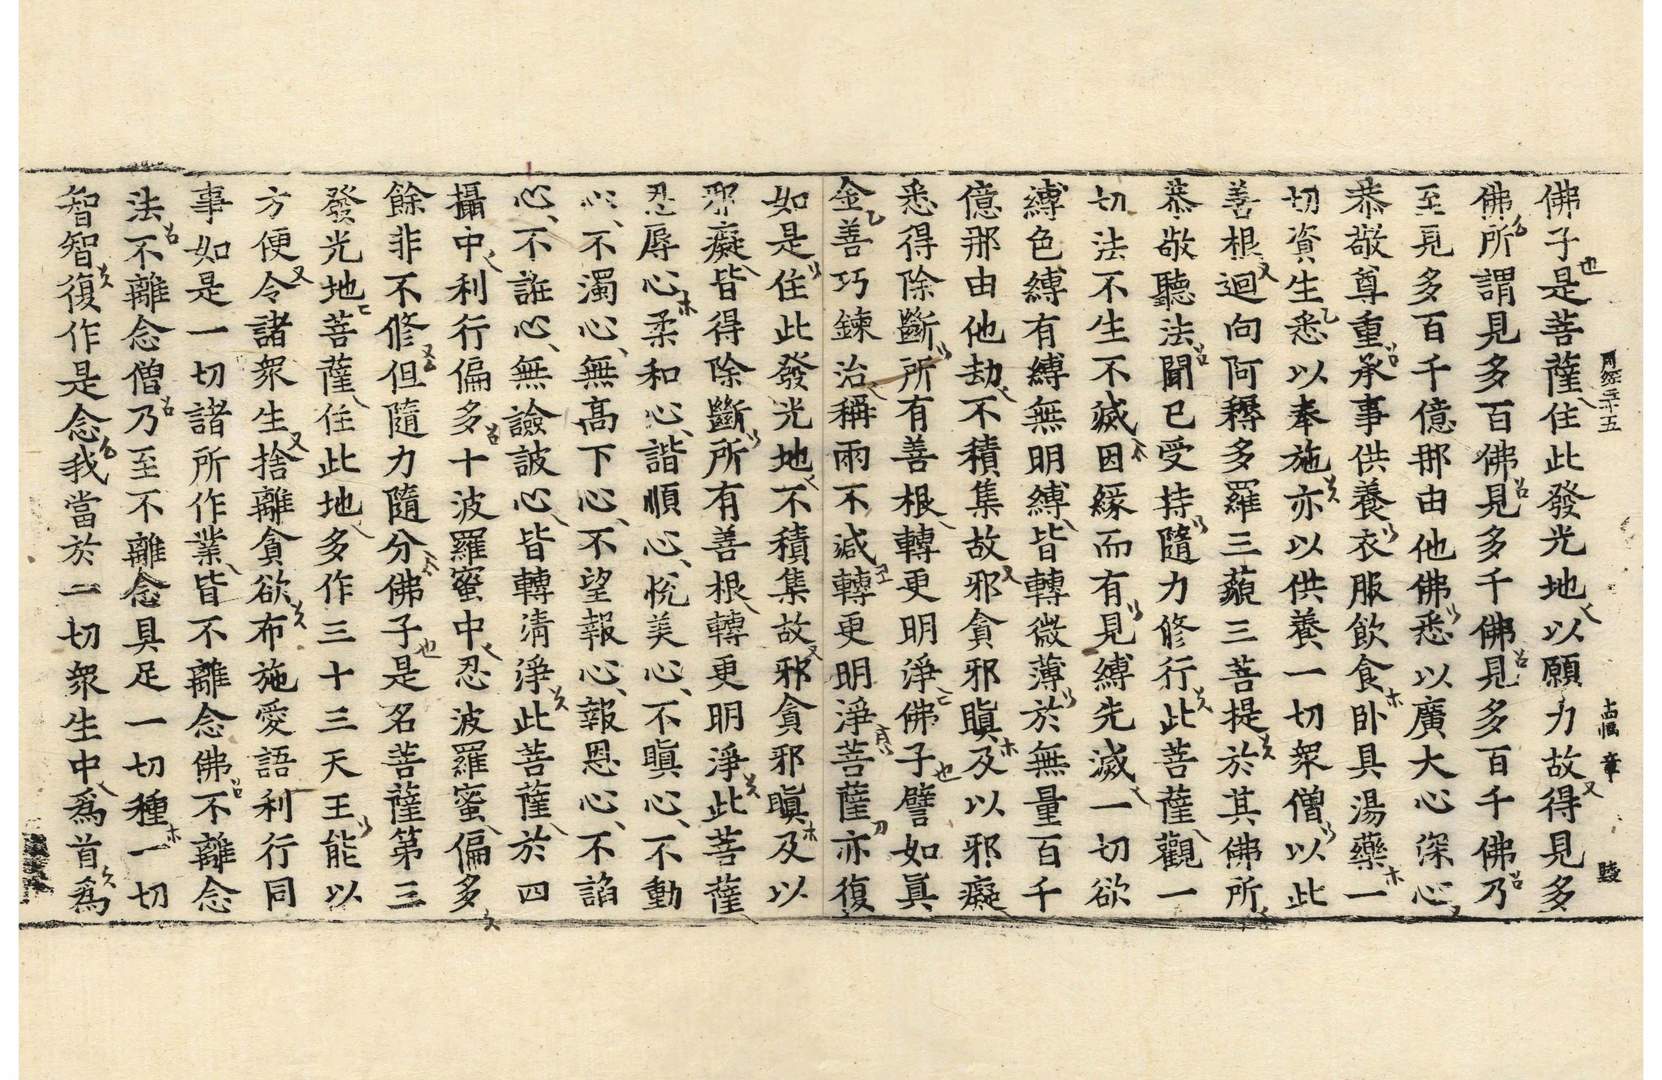 佛子是菩薩住此發光地以願力故得見多
佛所謂見多百佛見多千佛見多百千佛乃
至見多百千億那由他佛悉以廣大心深心
恭敬尊重承事供養衣服飲食卧具湯藥一
切資生悉以奉施亦以供養一切衆僧以此
善根迴向阿耨多羅三藐三菩提於其佛所
恭敬聽法聞已受持隨力修行此菩薩觀一
切法不生不滅因緣而有見縛先滅一切欲
縛色縛有縛無明縛皆轉微薄於無量百千
億那由他劫不積集故邪貪邪瞋及以邪癡
悉得除斷所有善根轉更明淨佛子譬如真
金善巧鍊治稱兩不減轉更明淨菩薩亦復
如是住此發光地不積集故邪貪邪瞋及以
邪癡皆得除斷所有善根轉更明淨此菩薩
忍辱心柔和心諧順心悅美心不瞋心不動
心不濁心無高下心不望報心報恩心不諂
心不誑心無譣詖心皆轉清淨此菩薩於四
攝中利行偏多十波羅蜜中忍波羅蜜偏多
餘非不修但隨力隨分佛子是名菩薩第三
發光地菩薩住此地多作三十三天王能以
方便令諸衆生捨離貪欲布施愛語利行同
事如是一切諸所作業皆不離念佛不離念
法不離念僧乃至不離念具足一切種一切
智智復作是念我當於一切衆生中爲首爲